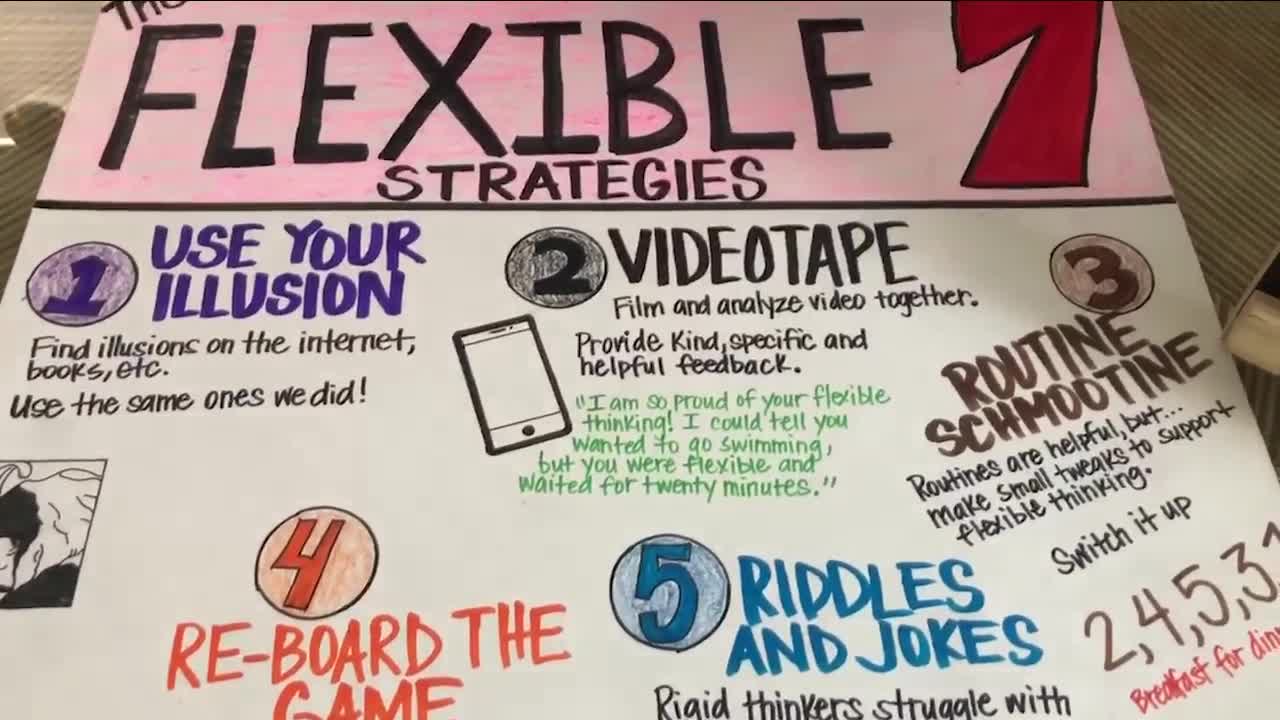 THE
FLEXIBLE 7
STRATEGIES
1 USE YOUR
ILLUSION
Find illusions on the internet,
books, etc.
Use the same ones we did!
2 VIDEOTAPE
Film and analyze video together.
Provide Kind, specific and
helpful feedback.
"I am so proud of your flexible
thinking! I could tell you
wanted to go swimming,
but you were flexible and
waited for twenty minutes."
3
ROUTINE
SCHMOOTINE
Routines are helpful, but...
make small tweaks to support
flexible thinking.
Switch it up
2,4,5,3,1
Breakfast for
4
RE-BOARD THE
GAME
5 RIDDLES
AND JOKES
Rigid thinkers struggle with